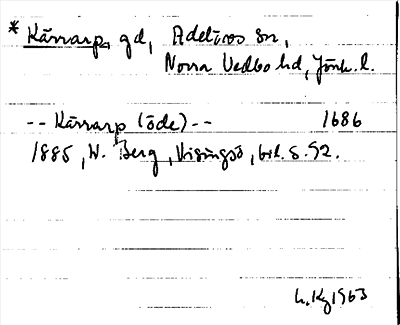 * Kärrarp, gd, Adelövs sn,
Norra Vedbo hd, Jönk. l.
-- Kärrarp (öde) -- 1686
1885, W. Berg, Visingsö, bil. s. 92.
L. Kg 1963